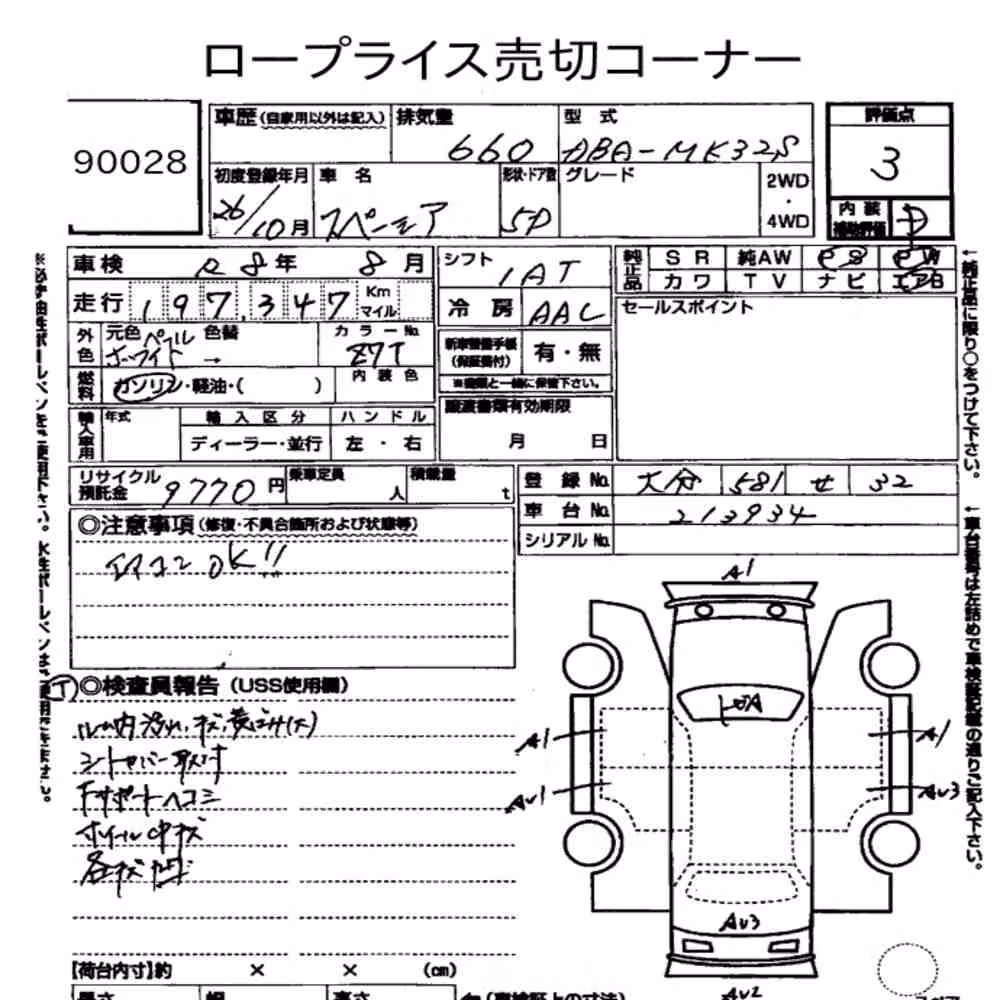 ロープライス売切コーナー
90028
車歴 (自家用以外は記入) 排気量 660 型 式 ABA-MK32S
評価点 3
初度登録年月 26/10月 車 名 スペーシア 形状・ドア数 5D グレード 2WD ・ 4WD
内 装 補助評価 D
車検 R8年 8月 シフト IAT
純正品 S R 純AW PS PW
カワ T V ナビ エアB
走行 197,347 Km マイル 冷 房 AAC
セールスポイント
外色 元色 パールホワイト 色替 → カラーNo. Z7T
新車整備手帳 (保証書付) 有・無
※書類と一緒に保管下さい。
燃料 ガソリン・軽油・( ) 内 装 色
輸入車用 年式 輸 入 区 分 ハ ン ド ル
ディーラー・並行 左 ・ 右
譲渡書類有効期限
月 日
リサイクル預託金 9770円 乗車定員 人 積載量 t
登 録 No. 大分 581 せ 32
車 台 No. 213934
シリアル No.
◎注意事項 (修復・不具合箇所および状態等)
OK!!
◎検査員報告 (USS使用欄)
シートカバー取付
Fサポートヘコミ
ホイール中キズ
各キズ凹
A1
A1
A1
AU1
AU3
AU3
AU2
【荷台内寸】約 × × (cm)
長さ 幅 高さ
※必ず油性ボールペンをご使用下さい。水性ボールペンはご使用できません。
←純正品に限り○をつけて下さい。
←車台番号は左詰めで車検証記載の通りご記入下さい。